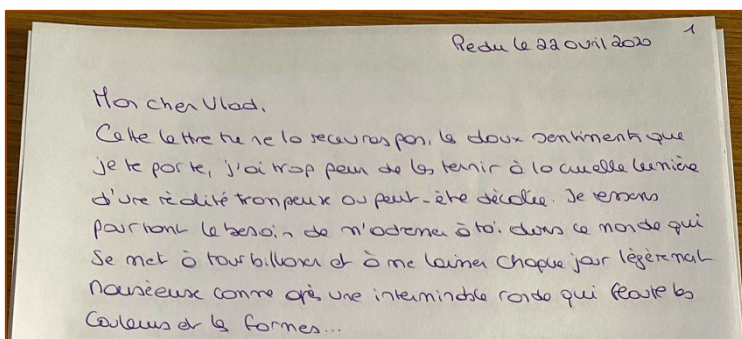 Redu le 22 avril 2020 1
Mon cher Vlad,
Cette lettre tu ne la recevras pas, les doux sentiments que
je te porte, j'ai trop peur de les ternir à la cruelle lumière
d'une réalité trompeuse ou peut-être décalée. Je ressens
pourtant le besoin de m'adresser à toi dans ce monde qui
se met à tourbillonner et à me laisser chaque jour légèrement
nauséeuse comme après une interminable ronde qui les
couleurs et les formes...